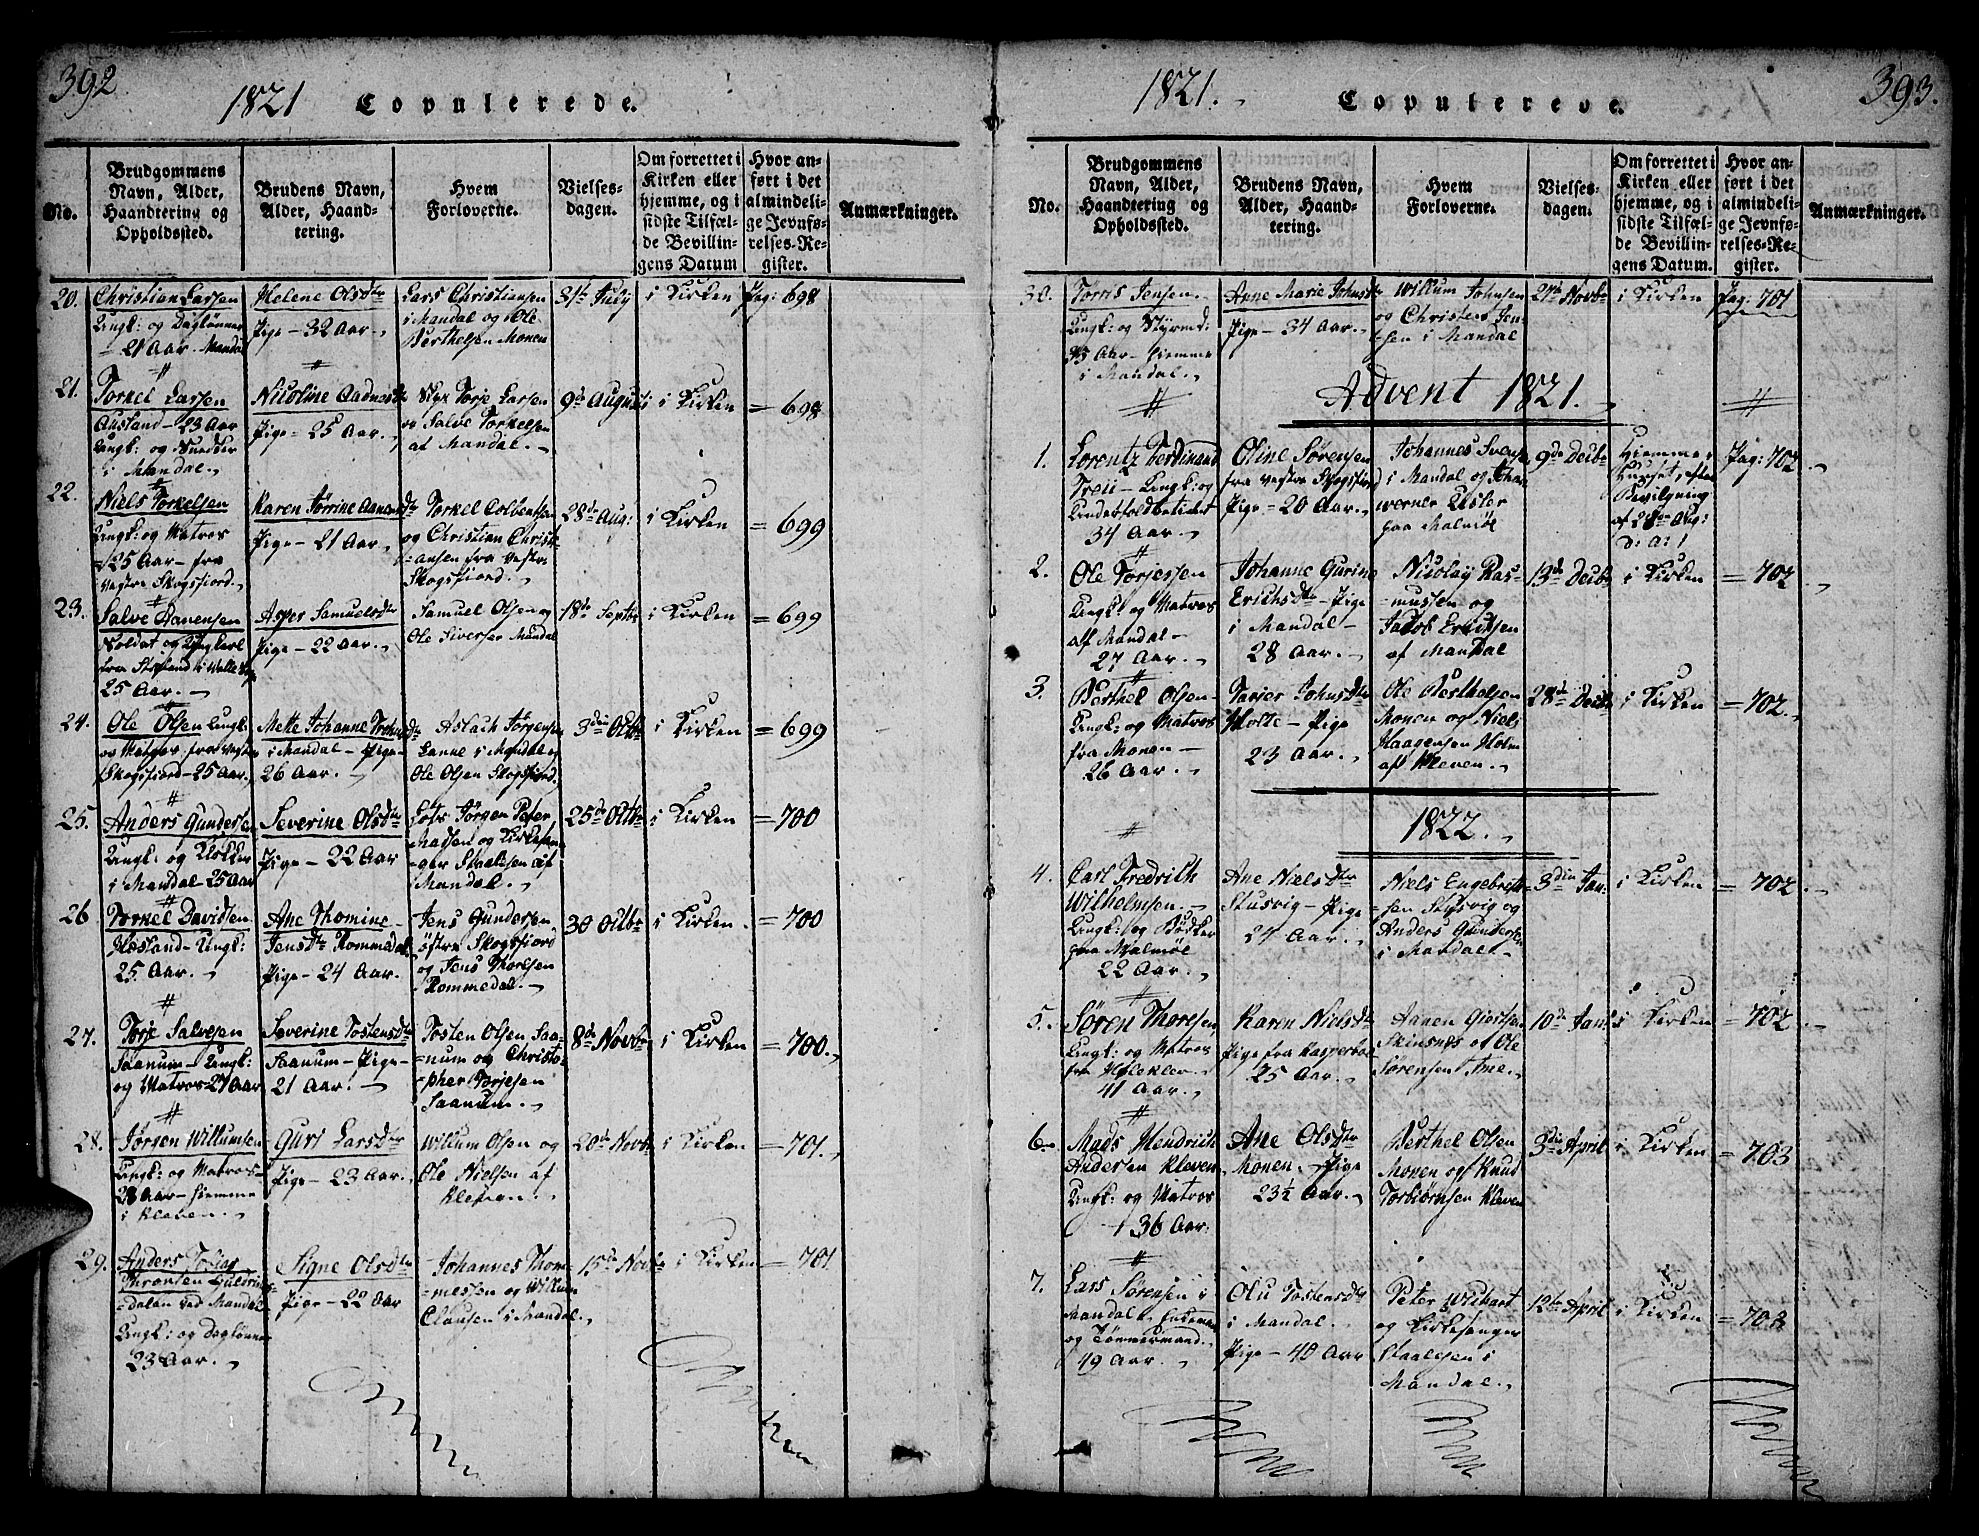 392
1821 Copulerede.
No.
Brudgommens
Navn, Alder,
Haandtering og
Opholdssted.
Brudens Navn,
Alder, Haand-
tering.
Hvem
Forloverne.
Vielses-
dagen.
Om forrettet i
Kirken eller
hjemme, og i
sidste Tilfæl-
de Bevillin-
gens Datum
Hvor an-
ført i det
almindeli-
ge Jevnfø-
relses-Re-
gister.
Anmærkninger.
20.
Christian Larsen
Ungk: og Dagl&oslash;nner
21 Aar. Mandal
Helene Olsdtr
Pige - 32 Aar.
Lars Christiansen
i Mandal og Ole
Berthelsen Monen
31te July
i Kirken
Pag: 698
21.
Torkel Larsen
Ausland - 23 Aar
Ungk: og Snedker
i Mandal.
Nicoline Aadnesdtr
Pige - 25 Aar.
Torje Larsen
og Salve Torkelsen
af Mandal.
9de August
i Kirken
= 698
22.
Niels Torkelsen
Ungk: og Matros
25 Aar - fra
Vestre Skogsfiord.
Karen Tørrine Aanensdtr
Pige - 21 Aar.
Torkel Colbentsen
og Christian Christi-
=ansen fra Vestre
Skogsfiord.
28de Aug:
i Kirken
= 699
23.
Salve Aanensen
Soldat og Ungkarl
25 Aar.
Asper Samuelsdtr
Pige - 22 Aar.
Samuel Olsen og
Ole Siversen Mandal
18de Septbr
i Kirken
= 699
24.
Ole Olsen Ungk:
og Matros fra Vestre
Skogsfiord - 25 Aar.
Mette Johanne Tronsdtr
i Mandal - Pige
26 Aar.
Aslach Jørgensen
Lanne i Mandal og
Ole Olsen Skogsfiord.
3die Octbr
i Kirken
= 699
25.
Anders Gundersen
Ungk: og Klokker
i Mandal 25 Aar
Severine Olsdtr
Pige - 22 Aar
Lots Jørgen Peter
Madsen og Kirkesan-
=ger Staalesen af
Mandal.
25de Octbr
i Kirken
= 700
26
Torkel Davidsen
Hesland - Ungk:
25 Aar.
Ane Thomine
Jensdtr Rommedal
Pige - 24 Aar.
Jens Gundersen
østre Skogsfiord
og Jens Thorsen
Rommedal.
30 Octbr
i Kirken.
= 700
27.
Torje Salvesen
Saanum - Ungk:
og Matros 27 Aar
Severine Tostensdtr
Saanum - Pige -
21 Aar.
Tosten Olsen Saa-
=num og Christo-
=pher Torjesen
Saanum.
8de Novbr
i Kirken
= 700.
28.
Jørgen Willumsen
Ungk: og Matros -
28 Aar - hiemme
i Kleven.
Guri Larsdtr
Pige - 23 Aar.
Willum Olsen og
Ole Nielsen af
Kleven.
20de Novbr
i Kirken
= 701.
29.
Anders Tobias
Thronsen Guldrins-
=dalen ved Mandal
Ungk: og Dagl&oslash;nner
23 Aar.
Signe Olsdtr
Pige - 22 Aar
Johannes Thom-
=messen og Willum
Clausen i Mandal.
15de Novbr
i Kirken
= 701
393.
1821. Copulerede.
No.
Brudgommens
Navn, Alder,
Haandtering og
Opholdssted.
Brudens Navn,
Alder, Haand-
tering.
Hvem
Forloverne.
Vielses-
dagen.
Om forrettet i
Kirken eller
hjemme, og i
sidste Tilfæl-
de Bevillin-
gens Datum.
Hvor an-
ført i det
almindeli-
ge Jevnfø-
relses-Re-
gister.
Anmærkninger.
30.
Torris Jensen.
Ungk: og Styrmd:
Aar - hiemme
i Mandal.
Anne Marie Johnsdtr
Pige - 34 Aar.
Willum Johnsen
og Christen Jen-
=sen i Mandal
27de Novbr
i Kirken
Pag: 701
Advent 1821.
1.
Lorentz Ferdinand
Treu - Ungk: og
Underfoldbetient
34 Aar.
Oline Sørensen
fra Vestre Skogsfiord
Pige - 20 Aar.
Johannes Svens
i Mandal og Johan
Werner Lister
paa Malmøe
9de Decbr
Hiemme i
Huuset, efter
Bevilgning
af 28de Aug:
d: A: 1
Pag: 702
2.
Ole Torjessen
Ungk: og Matros
af Mandal -
27 Aar.
Johanne Gurine
Erichsdtr - Pige
i Mandal -
28 Aar.
Nicolay Ras-
=mussen og
Jacob Ericksen
af Mandal
13de Decbr
i Kirken
= 702
3.
Berthel Olsen
Ungk: og Matros
fra Monen -
26 Aar.
Tarjer Johnsdtr
Holte - Pige
23 Aar.
Ole Berthelsen
Monen og Niels
Haagensen Holm
af Kleven.
28de Decbr
i Kirken
= 702.
1822.
4.
Carl Fredrich
Wilhelmsen.
Ungk: og Bødker
paa Malmøe
22 Aar.
Ane Nielsdtr
Stusvig - Pige
24 Aar.
Niels Engebret-
=sen Stusvig og
Anders Gundersen
i Mandal -
3die Jan:
i Kirken
= 702.
5.
Søren Thorsen,
Ungk: og Matros
fra Høleklev.
41 Aar.
Karen Nielsdtr
Pige fra Kasperboe
25 Aar.
Aanen Giertsen
Skinsnes og Ole
Sørensen Ime.
10de Jan:
i Kirken
= 702
6
Mads Hendrich
Andersen Kleven
Ungk: og Matros
36 Aar.
Ane Olsdtr
Monen - Pige
23½ Aar.
Berthel Olsen
Monen og Knud
Torbiørnsen Kleven
3die April
i Kirken
= 703
7.
Lars Sørensen i
Mandal. Enkemand
og Tømmermand.
49 Aar.
Olu Tostensdtr
i Mandal.
Pige - 40 Aar
Peter Wibart
og Kirkesanger
Staalesen i
Mandal.
12te April
i Kirken
= 703